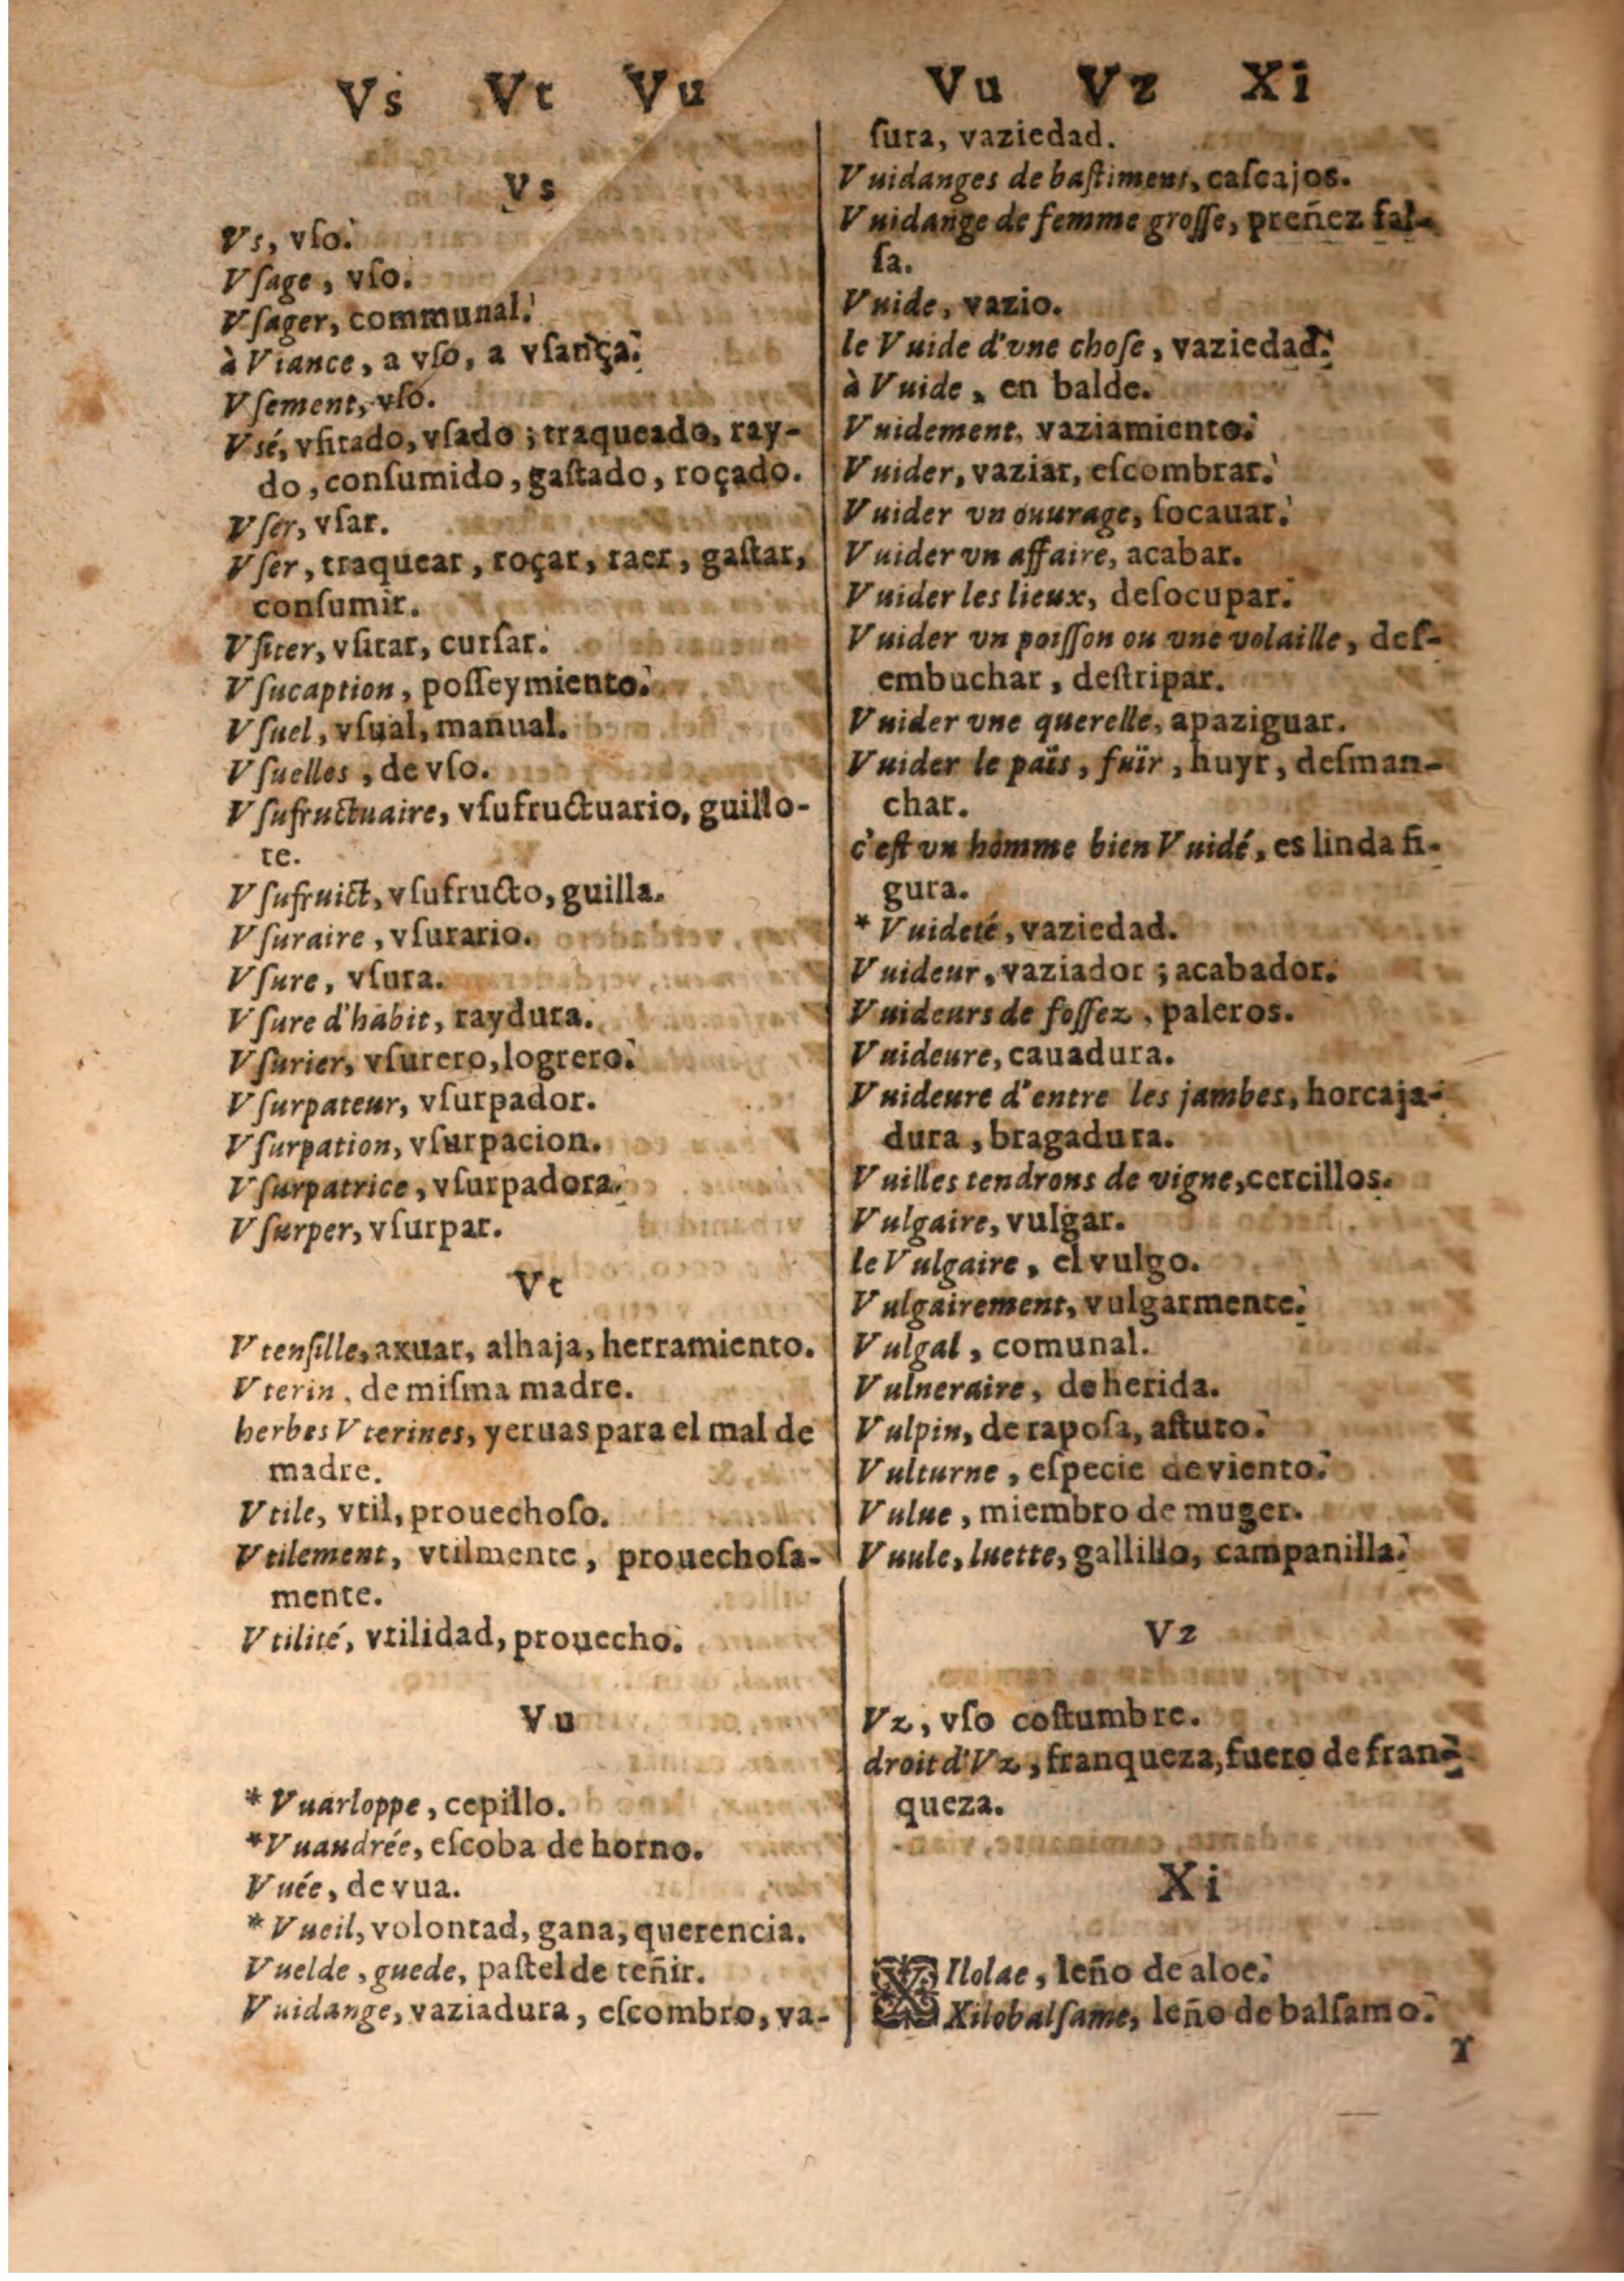 Vs Vt Vu
Vs
Vs, vſo.
Vſage, vſo.
Vſager, communal.
à Vſance, a vſo, a vſança.
Vſement, vſo.
Vsé, vſitado, vſado ; traqueado, ray-
do, conſumido, gaſtado, roçado.
Vſer, vſar.
Vſer, traquear, roçar, raer, gaſtar,
conſumir.
Vſiter, vſitar, curſar.
Vſucaption, poſſeymiento.
Vſuel, vſual, manual.
Vſuelles, de vſo.
Vſufructuaire, vſufructuario, guillo-
te.
Vſufruict, vſufructo, guilla.
Vſuraire, vſurario.
Vſure, vſura.
Vſure d'habit, raydura.
Vſurier, vſurero, logrero.
Vſurpateur, vſurpador.
Vſurpation, vſurpacion.
Vſurpatrice, vſurpadora.
Vſurper, vſurpar.
Vt
Vtenſille, axuar, alhaja, herramiento.
Vterin, de miſma madre.
herbes Vterines, yeruas para el mal de
madre.
Vtile, vtil, prouechoſo.
Vtilement, vtilmente, prouechoſa-
mente.
Vtilité, vtilidad, prouecho.
Vu
*Vuarloppe, cepillo.
*Vuandrée, eſcoba de horno.
Vuée, de vua.
*Vueil, volontad, gana, querencia.
Vuelde, guede, paſtel de teñir.
Vuidange, vaziadura, eſcombro, va-
Vu Vz Xi
ſura, vaziedad.
Vuidanges de baſtiment, caſcajos.
Vuidange de femme groſſe, preñez fal-
ſa.
Vuide, vazio.
le Vuide d'vne choſe, vaziedad.
à Vuide, en balde.
Vuidement, vaziamiento.
Vuider, vaziar, eſcombrar.
Vuider vn ouurage, ſocauar.
Vuider vn affaire, acabar.
Vuider les lieux, deſocupar.
Vuider vn poiſſon ou vne volaille, deſ-
embuchar, deſtripar.
Vuider vne querelle, apaziguar.
Vuider le païs, fuïr, huyr, deſman-
char.
c'eſt vn homme bien Vuidé, es linda fi-
gura.
*Vuideté, vaziedad.
Vuideur, vaziador ; acabador.
Vuideurs de foſſez, paleros.
Vuideure, cauadura.
Vuideure d'entre les jambes, horcaja-
dura, bragadura.
Vuilles tendrons de vigne, cercillos.
Vulgaire, vulgar.
le Vulgaire, el vulgo.
Vulgairement, vulgarmente.
Vulgal, comunal.
Vulneraire, de herida.
Vulpin, de rapoſa, aſtuto.
Vulturne, eſpecie de viento.
Vulue, miembro de muger.
Vuule, luette, gallillo, campanilla.
Vz
Vz, vſo coſtumbre.
droit d'Vz, franqueza, fuero de fran-
queza.
Xi
XIlolae, leño de aloe.
Xilobalſame, leño de balſamo.
Y